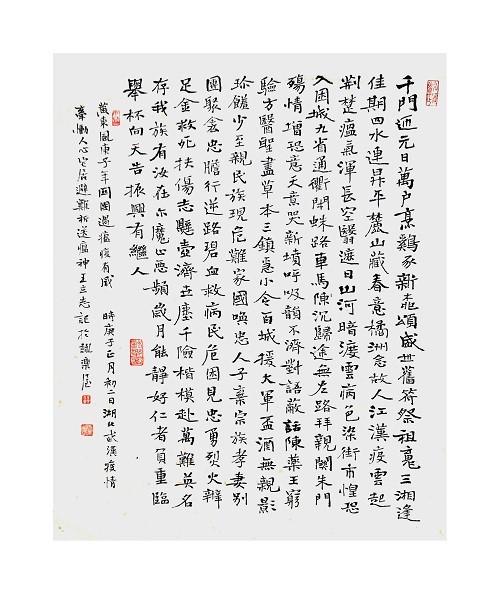 千門迎元日萬户烹鷄豕新桃頌盛世舊符祭祖三湘逢
佳期四水連昇平麓山藏春意橘洲念故人江漢疫雲起
荆楚瘟氣渾長空翳遮日山河暗渡雲病色染街市惶恐
入困城九省通衢閉蛛路車馬陳沉歸途無左路拜親閉朱門
殤情增恐意天意哭新墳呼吸韻不濟對語蔽話陳藥王窮
驗方醫聖盡草本三鎮急小令百城援大軍盃酒無親影
珍饈少至親民族現危難家國喚忠人子棄宗族孝妻别
團聚衾忠膽行逆路碧血救病民危困見忠勇烈火辨
足金救死扶傷志懸壺濟塵千險楷模赴萬難英名
存我族有汝在尔魔心惡頻歲月能静好仁者負重臨
舉杯向天告振興有繼人
東風庚子年國遇瘟疫有感 時庚子正月初二日湖北武漢疫情
牽動人心空居避難祈送瘟神王立志記於樂居